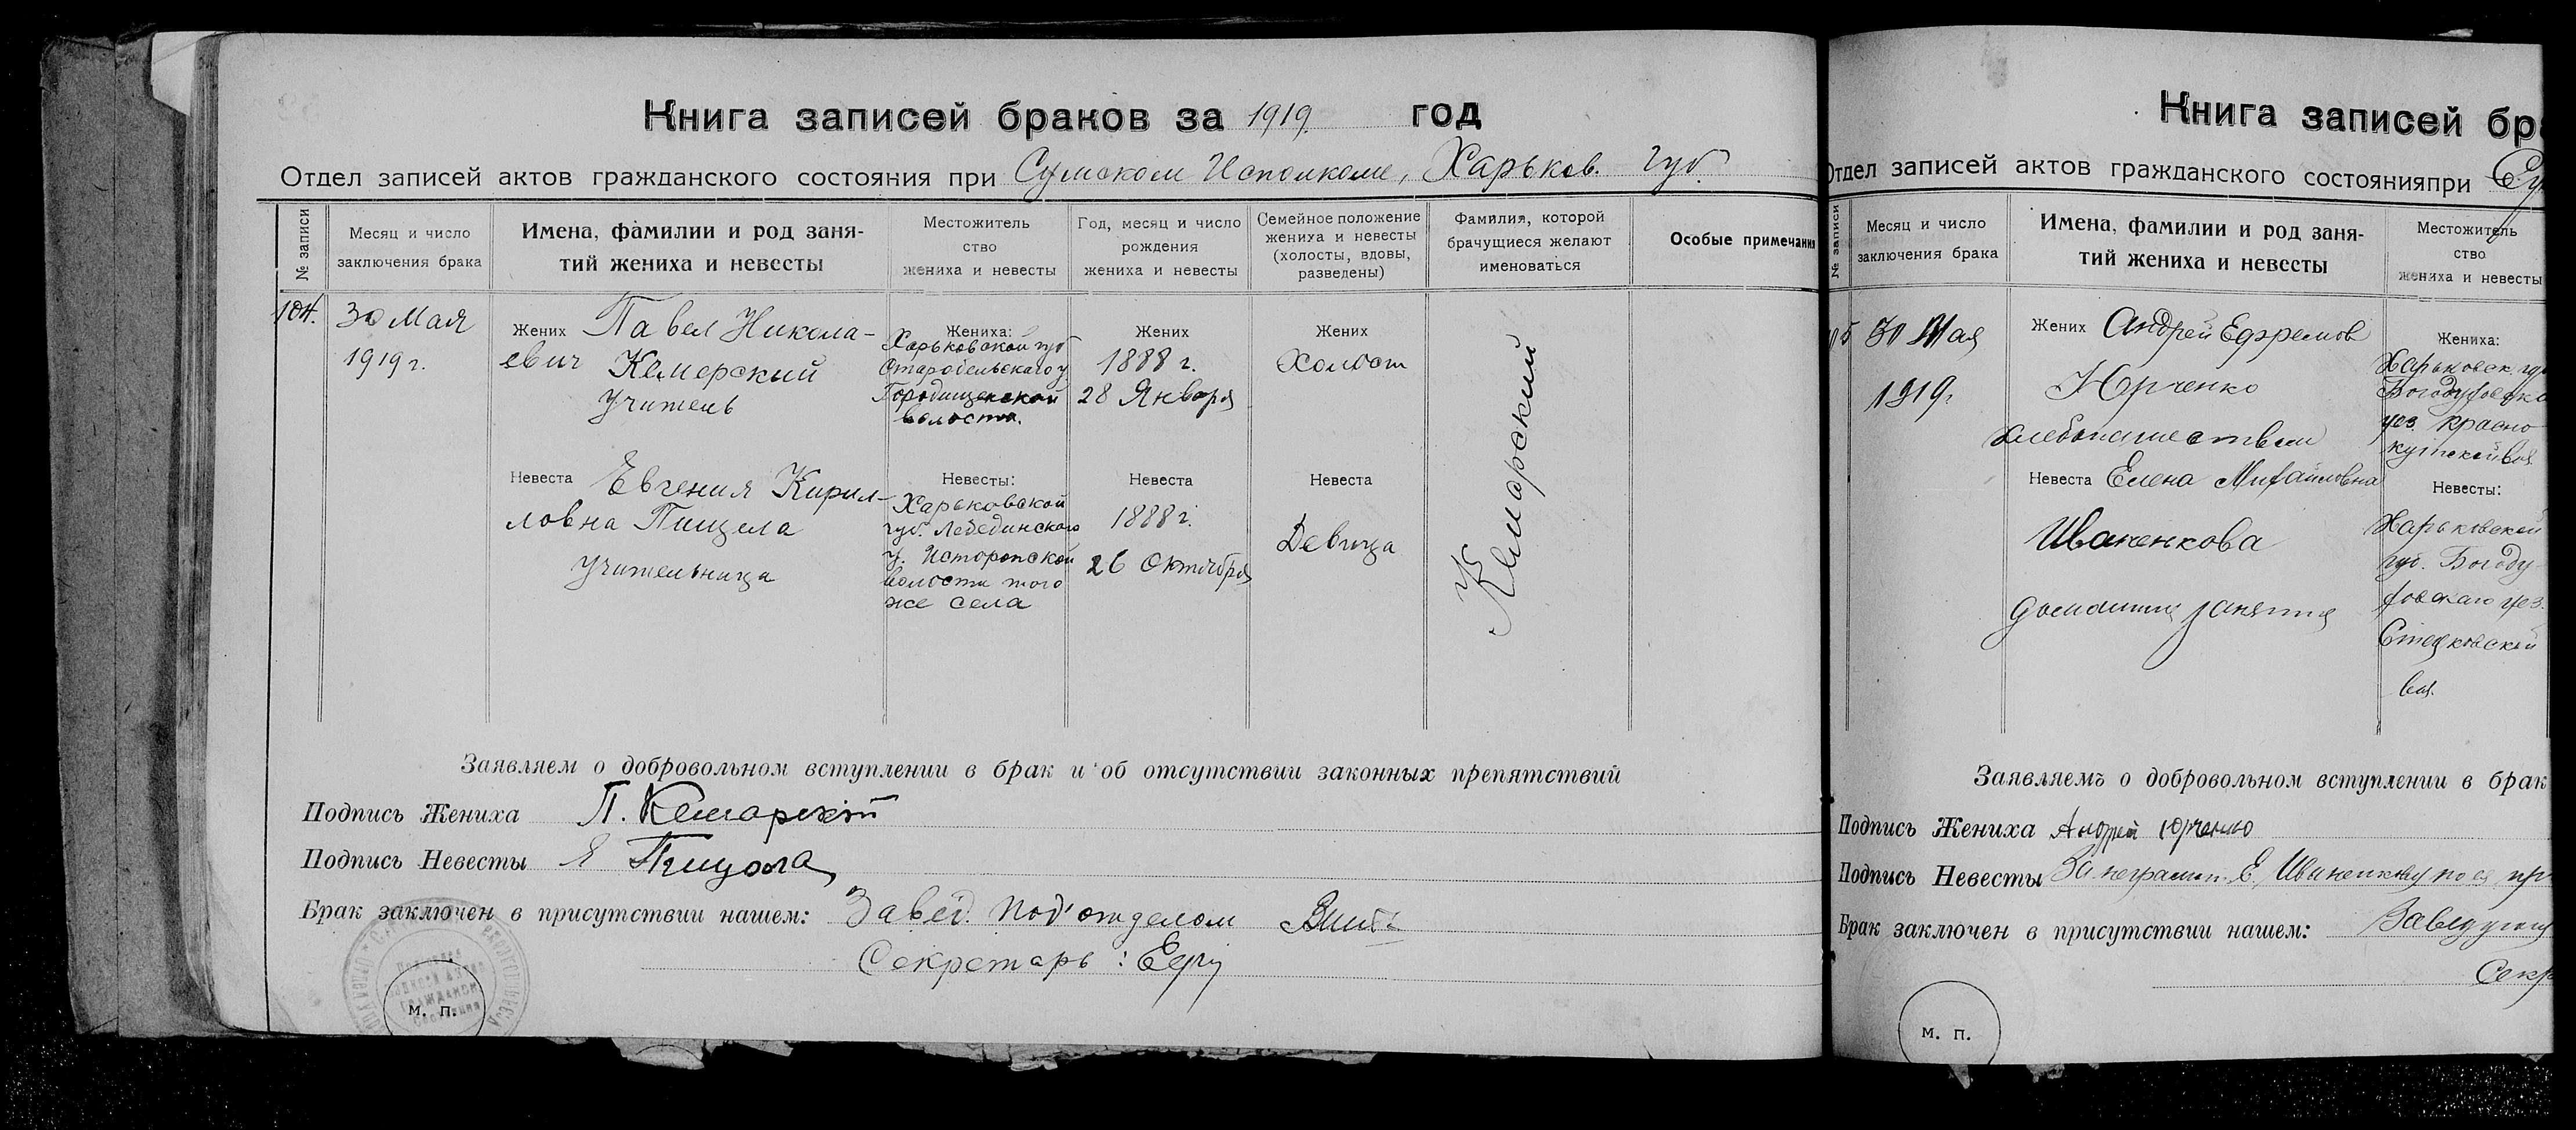 Книга записей браков за 1919 год
Отдел записей актов гражданского состояния при Сумском Исполкоме, Харьков. губ.
№ записи
Месяц и число
заключения брака
Имена, фамилии и род заня-
тий жениха и невесты
Местожитель
ство
жениха и невесты
Год, месяц и число
рождения
жениха и невесты
Семейное положение
жениха и невесты
(холосты, вдовы,
разведены)
Фамилия, которой
брачущиеся желают
именоваться
Особые примечания
104.
30 Мая
1919 г.
Жених Павел Никола-
евич Кемарский
Учитель
Жениха:
Харьковской губ
Старобельскаго у
Городищенской
волости.
Жених
1888 г.
28 Января
Жених
Холост
Кемарский
Невеста Евгения Кирил-
ловна Пищела
Учительница
Невесты:
Харьковской
губ. Лебединского
у. Исторопской
волости того
же села
Невеста
1888 г.
26 Октября
Невеста
Девица
Заявляем о добровольном вступлении в брак и об отсутствии законных препятствий
Подпись Жениха П. Кемарскій
Подпись Невесты Е Пищола
Брак заключен в присутствии нашем: Завед. Под'отделом
Секретарь:
м. п.
Книга записей бра
Отдел записей актов гражданского состоянияпри Су
№ записи
Месяц и число
заключения брака
Имена, фамилии и род заня-
тий жениха и невесты
Местожитель
ство
жениха и невесты
105
30 Мая
1919 г.
Жених Андрей Ефремов
Юрченко
хлебопашеством
Жениха:
Харьковск. гу
Богодуховско
уез. Красно
кутской вол.
Невеста Елена Михайловна
Иваненкова
домашния занятия
Невесты:
Харьковской
губ. Богоду
ховскаго уез.
вол.
Заявляемъ о добровольном вступлении в брак
Подпись Жениха Андрей Юрченко
Подпись Невесты За неграмотн. Е. Иваненкову по ея пр
Брак заключен в присутствии нашем: Заведующ
Секр
м. п.